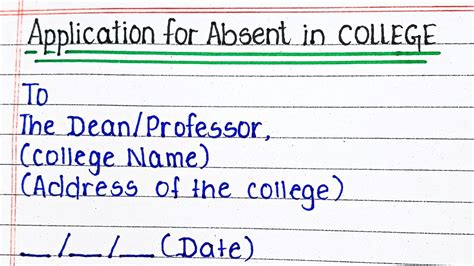 Application for Absent in COLLEGE
To
The Dean/Professor,
(College Name)
(Address of the college)
__/__/__ (Date)